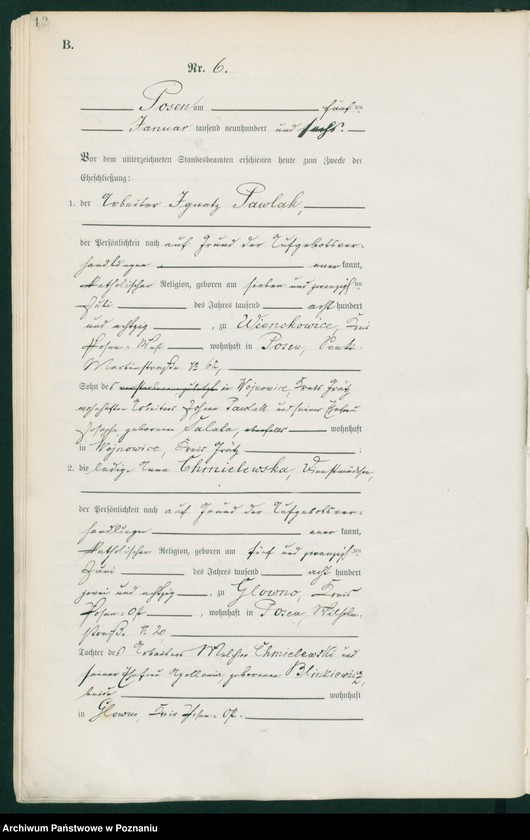 12
B.
Nr. 6.
Posen am fünften
Januar tausend neunhundert und sechs.
Vor dem unterzeichneten Standesbeamten erschienen heute zum Zwecke der
Eheschließung:
1. der Arbeiter Ignatz Pawlak,
der Persönlichkeit nach auf Grund der Aufgebotsver-
handlungen anerkannt,
katholischer Religion, geboren am sieben und zwanzigsten
Juli des Jahres tausend acht hundert
und achtzig, zu Wienskowice, Kreis
Posen-West wohnhaft in Posen, Sankt
Martinstraße № 62,
Sohn des in Wojnowice, Kreis Grätz
wohnhaften Arbeiters Pawlak und seiner Ehefrau
Josepha geborenen Salata, wohnhaft
in Wojnowice, Kreis Grätz ;
2. die ledige Anna Chmielewska, Dienstmädchen,
der Persönlichkeit nach auf Grund der Aufgebotsver-
handlungen anerkannt,
katholischer Religion, geboren am fünf und zwanzigsten
Juni des Jahres tausend acht hundert
zwei und achtzig, zu Glowno, Kreis
Posen-Ost, wohnhaft in Posen, Wilhelm-
straße № 20
Tochter des Arbeiters Melchior Chmielewski und
seiner Ehefrau Apollonia geborenen Blinkiewicz,
beide wohnhaft
in Glowno, Kreis Posen-Ost.
Archiwum Państwowe w Poznaniu